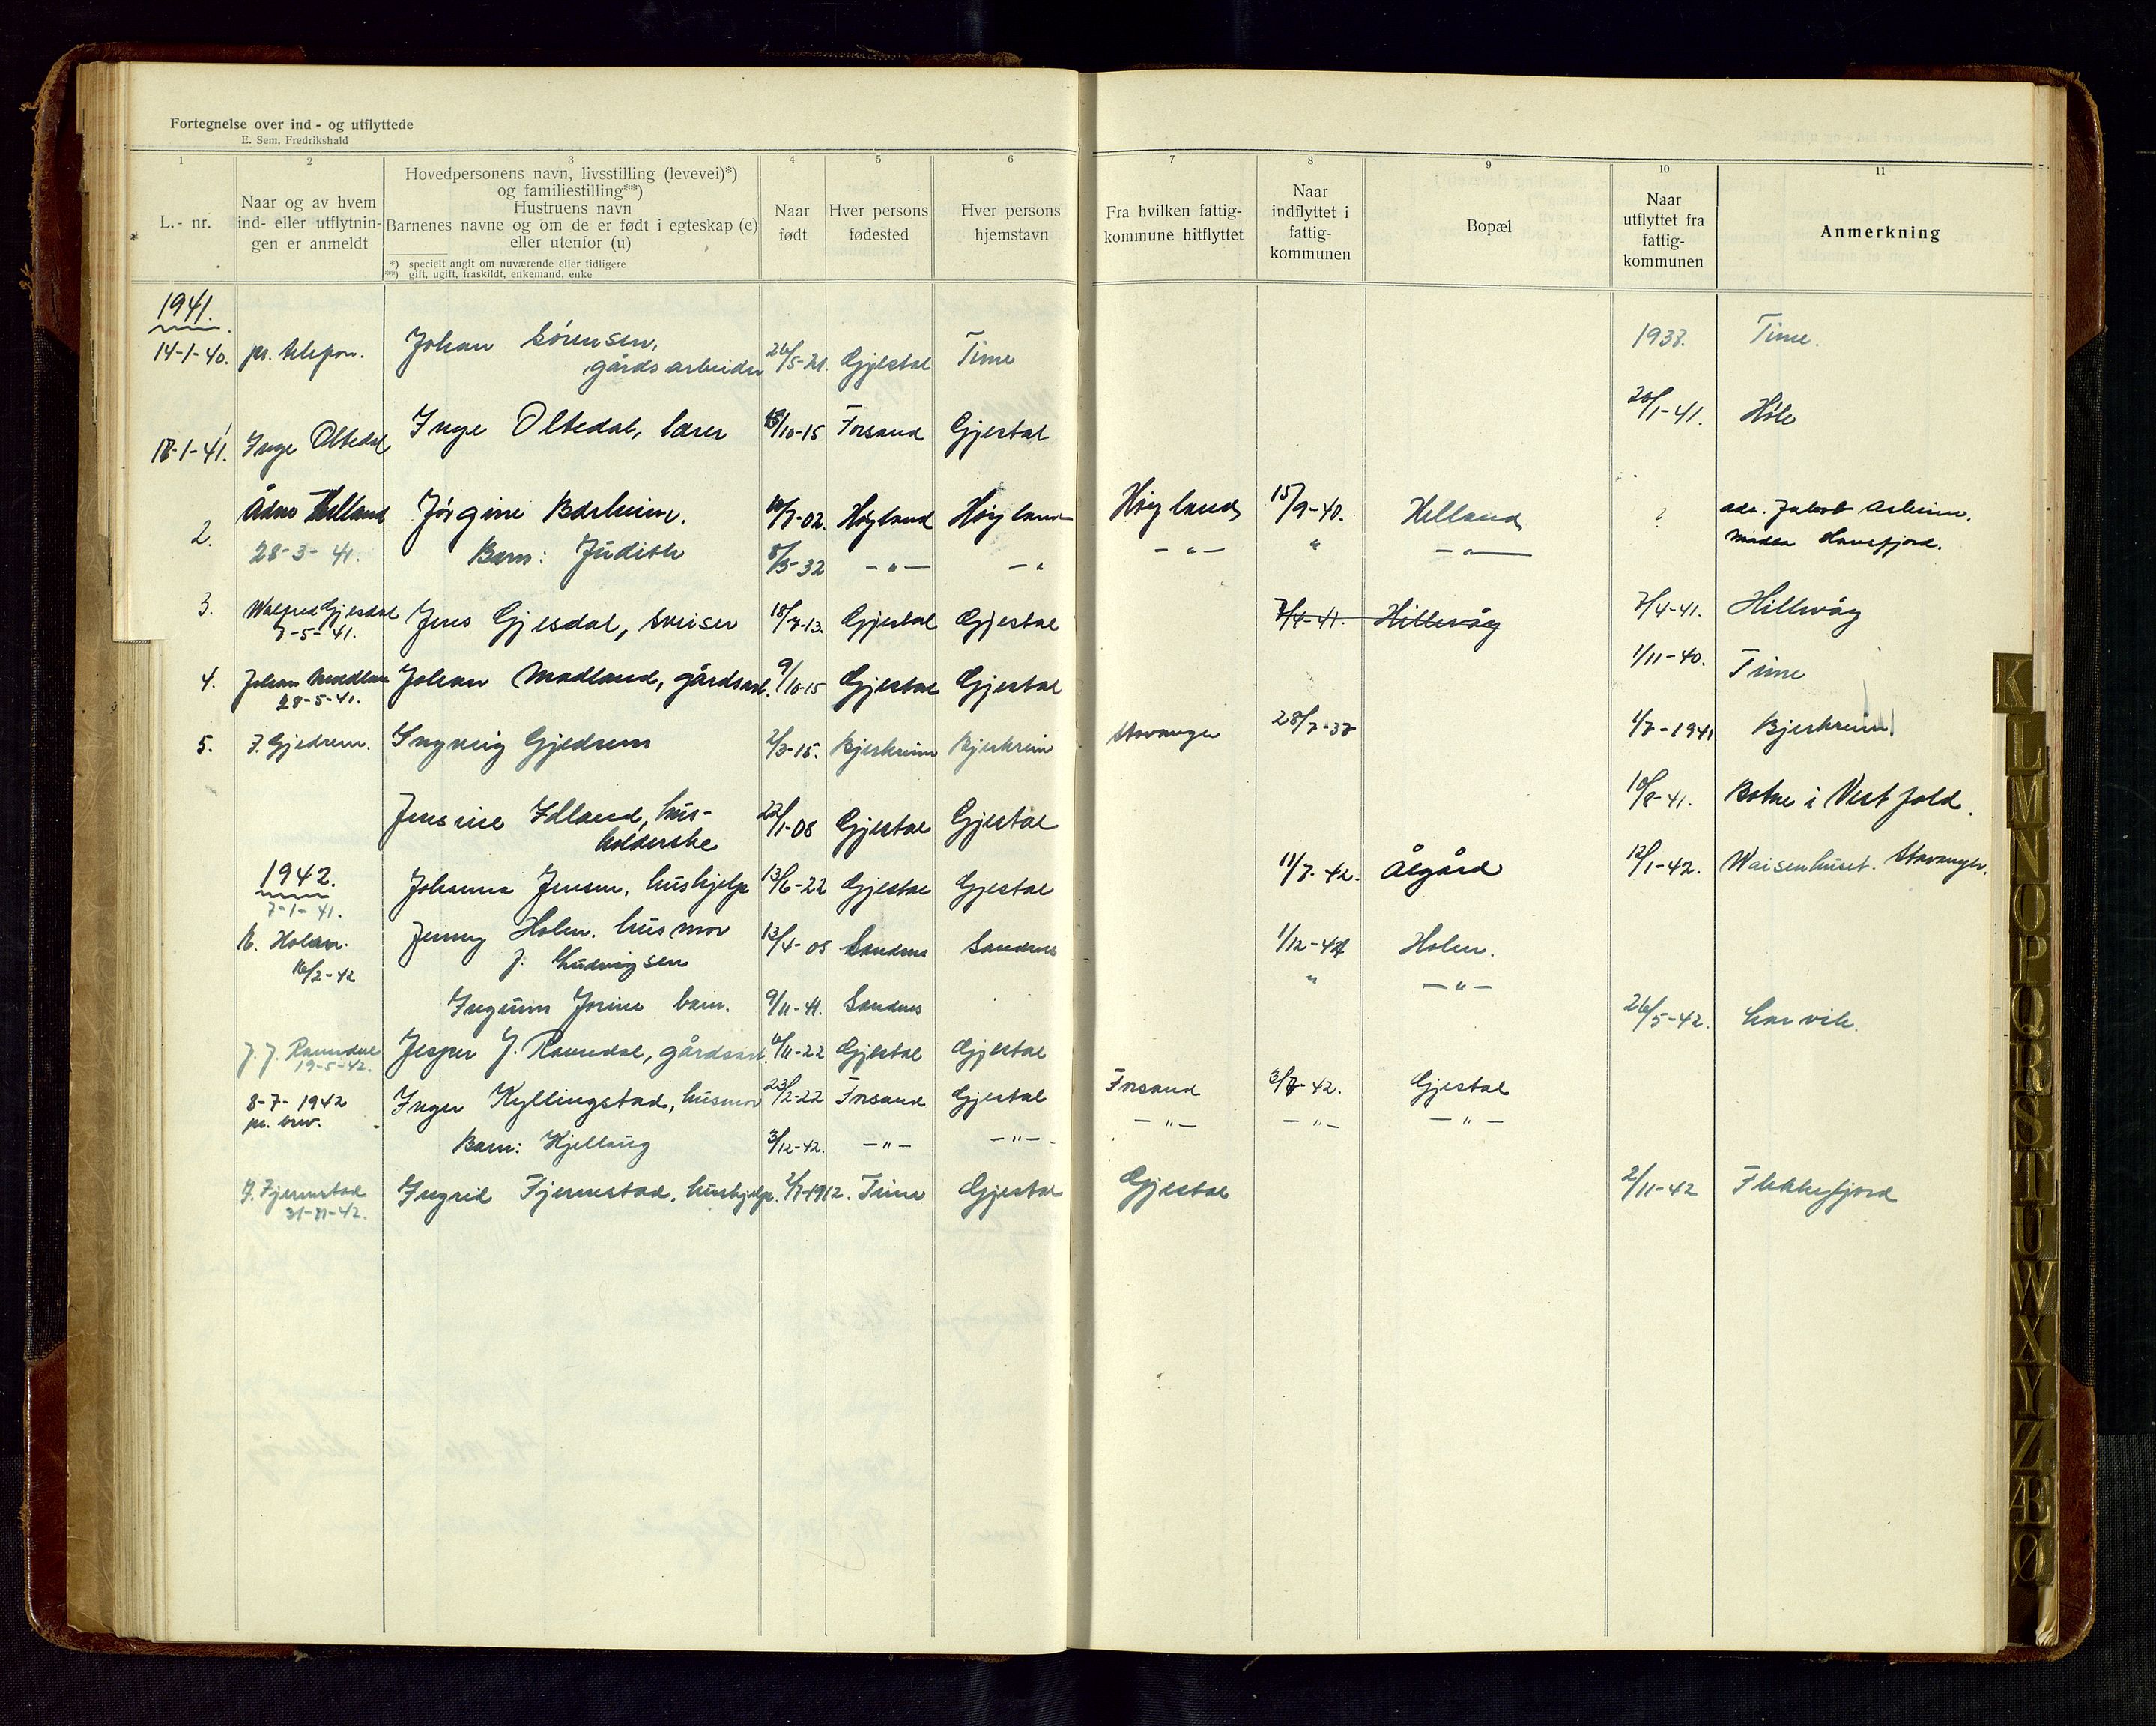 Fortegnelse over ind - og utflyttede
E. Sem, Fredrikshald
1 2 3 4 5 6 7 8 9 10 11
L.- nr.
Naar og av hvem
ind- eller utflytnin-
gen er anmeldt
Hovedpersonens navn, livsstilling (levevei)*)
og familiestilling**)
Hustruens navn
Barnenes navne og om de er født i egteskap (e)
eller utenfor (u)
*) specielt angit om nuværende eller tidligere
**) gift, ugift, fraskildt, enkemand, enke
Naar
født
Hver persons
fødested
Hver persons
hjemstavn
Fra hvilken fattig-
kommune hitflyttet
Naar
indflyttet i
fattig-
kommunen
Bopæl
Naar
utflyttet fra
fattig-
kommunen
Anmerkning
1941.
14-1-40. pr. telefon. Johan Sørensen, 26/5-21. Gjestal Time 1938. Time.
gårdsarbeider
18-1-41. Inge Oltedal Inge Oltedal, lærer /10-15 Forsand Gjestal 20/1-41. Høle
2. Ådne Helland Jørgine Bærheim. 10/7-02. Høyland Høyland Høyland 15/9-40. Helland ? adr. Jakob Asheim,
28-3-41. Barn: Judith 8/3-32 -"- -" -"- " -"- Madla Havsfjord.
3. Walfred Gjesdal Jens Gjesdal, sveiser 18/7-13. Gjestal Gjestal 7/4-41. Hillevåg 7/4-41. Hillevåg
7-5-41.
4. Johan Madland Johan Madland, gårdsarb. 9/10-15 Gjestal Gjestal 1/11-40. Time
28-5-41.
5. J. Gjedrem. Ingveig Gjedrem 2/3-15. Bjerkreim Bjerkreim Stavanger 28/7-37 1/7-1941 Bjerkreim
Jensine Idland, hus- 22/1-08 Gjestal Gjestal 10/8-41. Botne i Vestfold.
holderske
1942.
7-1-41. Johanna Jensen, hushjelp 13/6-22 Gjestal Gjestal 11/7-42. Ålgård 12/1-42. Waisenhuset. Stavanger.
K. Holen. Jenny Holen. husmor 13/4-08 Sandnes Sandnes 1/12-41 Holen.
16/2-42 f. Ludvigsen " -"-
Ingunn Jorine barn. 9/11-41. Sandnes
J. J. Ravndal Jesper J. Ravndal, gårdsarb. /11-22 Gjestal Gjestal 26/5-42. Larvik.
19-5-42.
8-7-1942 Inger Kyllingstad, husmor 23/2-22 Forsand Gjestal Forsand 3/7-42. Gjestal
pr. brev. Barn: Kjellaug 3/12-42. -"- -"- -"- -"- -"-
J. Fjermestad Ingrid Fjermestad, hushjelp. 2/7-1912. Time Gjestal Gjestal 2/11-42 Flekkefjord
31--42.
K
L
M
N
O
P
Q
R
S
T
U
W
X
Y
Z
Æ
Ø